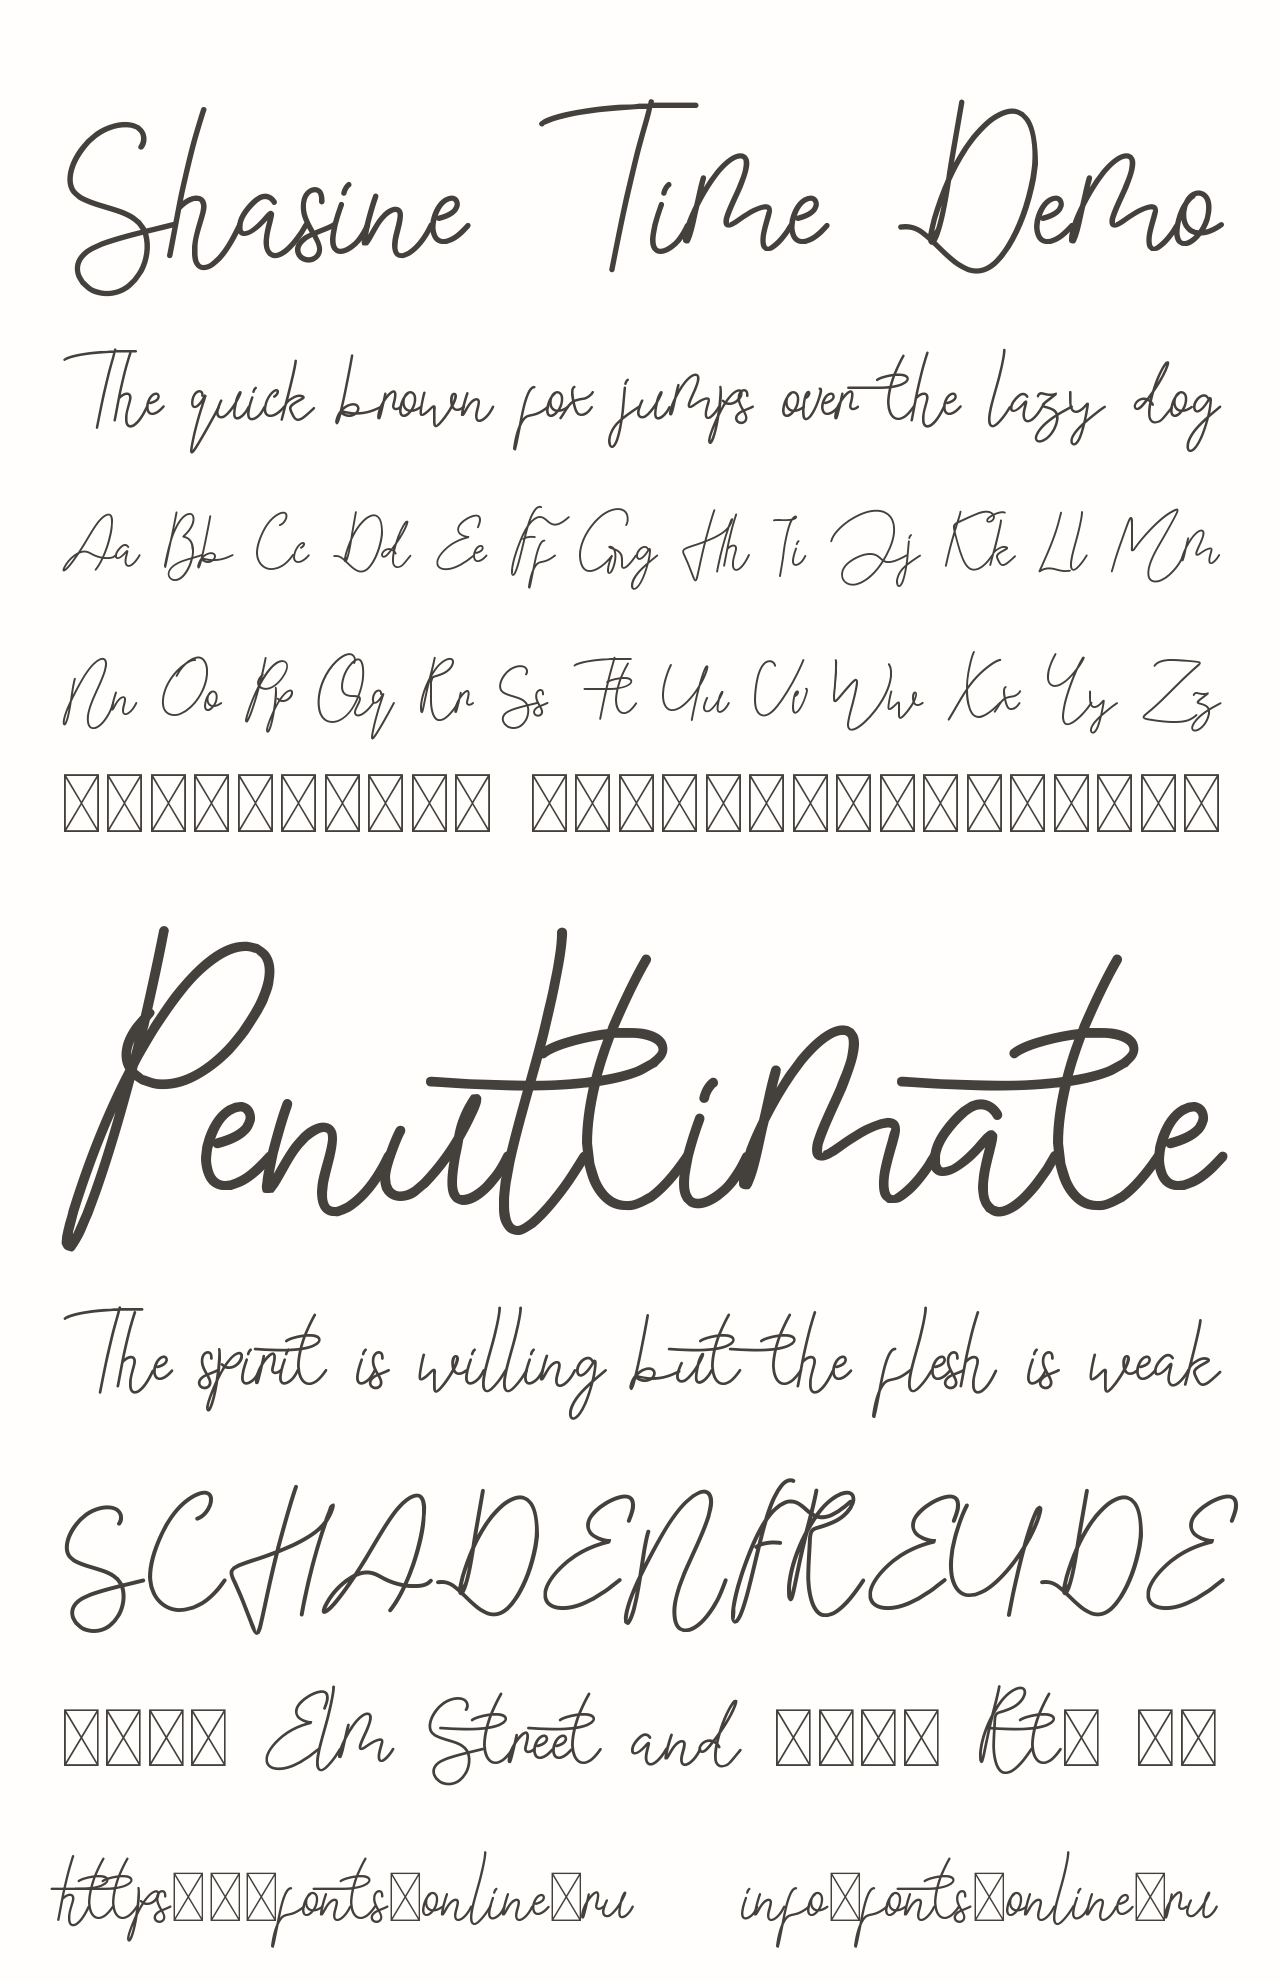 Shasine Time Demo
The quick brown fox jumps over the lazy dog
Aa Bb Cc Dd Ee Ff Gg Hh Ii Jj Kk Ll Mm
Nn Oo Pp Qq Rr Ss Tt Uu Vv Ww Xx Yy Zz
Penultimate
The spirit is willing but the flesh is weak
SCHADENFREUDE
Elm Street and Rt
https fonts online ru info fonts online ru